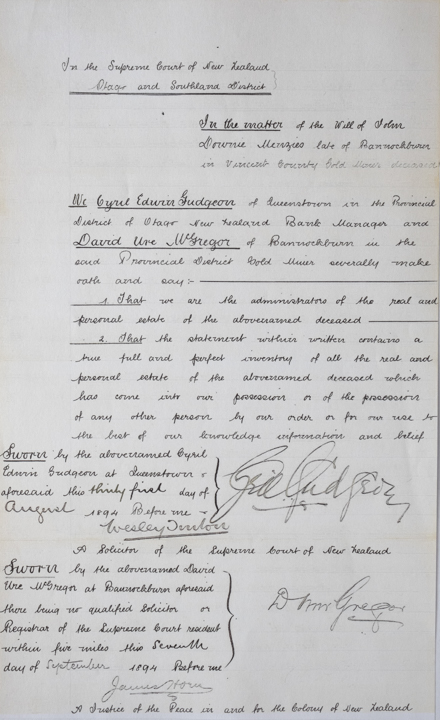 In the Supreme Court of New Zealand
Otago and Southland District
In the matter of the Will of John
Downie Menzies late of Bannockburn
in Vincent County Gold Miner deceased
We Cyril Edwin Gudgeon of Queenstown in the Provincial
District of Otago New Zealand Bank Manager and
David Ure McGregor of Bannockburn in the
said Provincial District Gold Miner severally make
oath and say:-
1. That we are the administrators of the real and
personal estate of the abovenamed deceased
2. That the statement within written contains a
true full and perfect inventory of all the real and
personal estate of the abovenamed deceased which
has come into our possession or of the possession
of any other person by our order or for our use to
the best of our knowledge information and belief
Sworn by the abovenamed Cyril
Edwin Gudgeon at Queenstown
aforesaid this thirty first day of
August 1894 Before me
Cyril E. Gudgeon
Wesley Turton
A Solicitor of the Supreme Court of New Zealand
Sworn by the abovenamed David
Ure McGregor at Bannockburn aforesaid
there being no qualified Solicitor or
Registrar of the Supreme Court resident
within five miles this Seventh
day of September 1894 Before me
D McGregor
James Horn
A Justice of the Peace in and for the Colony of New Zealand